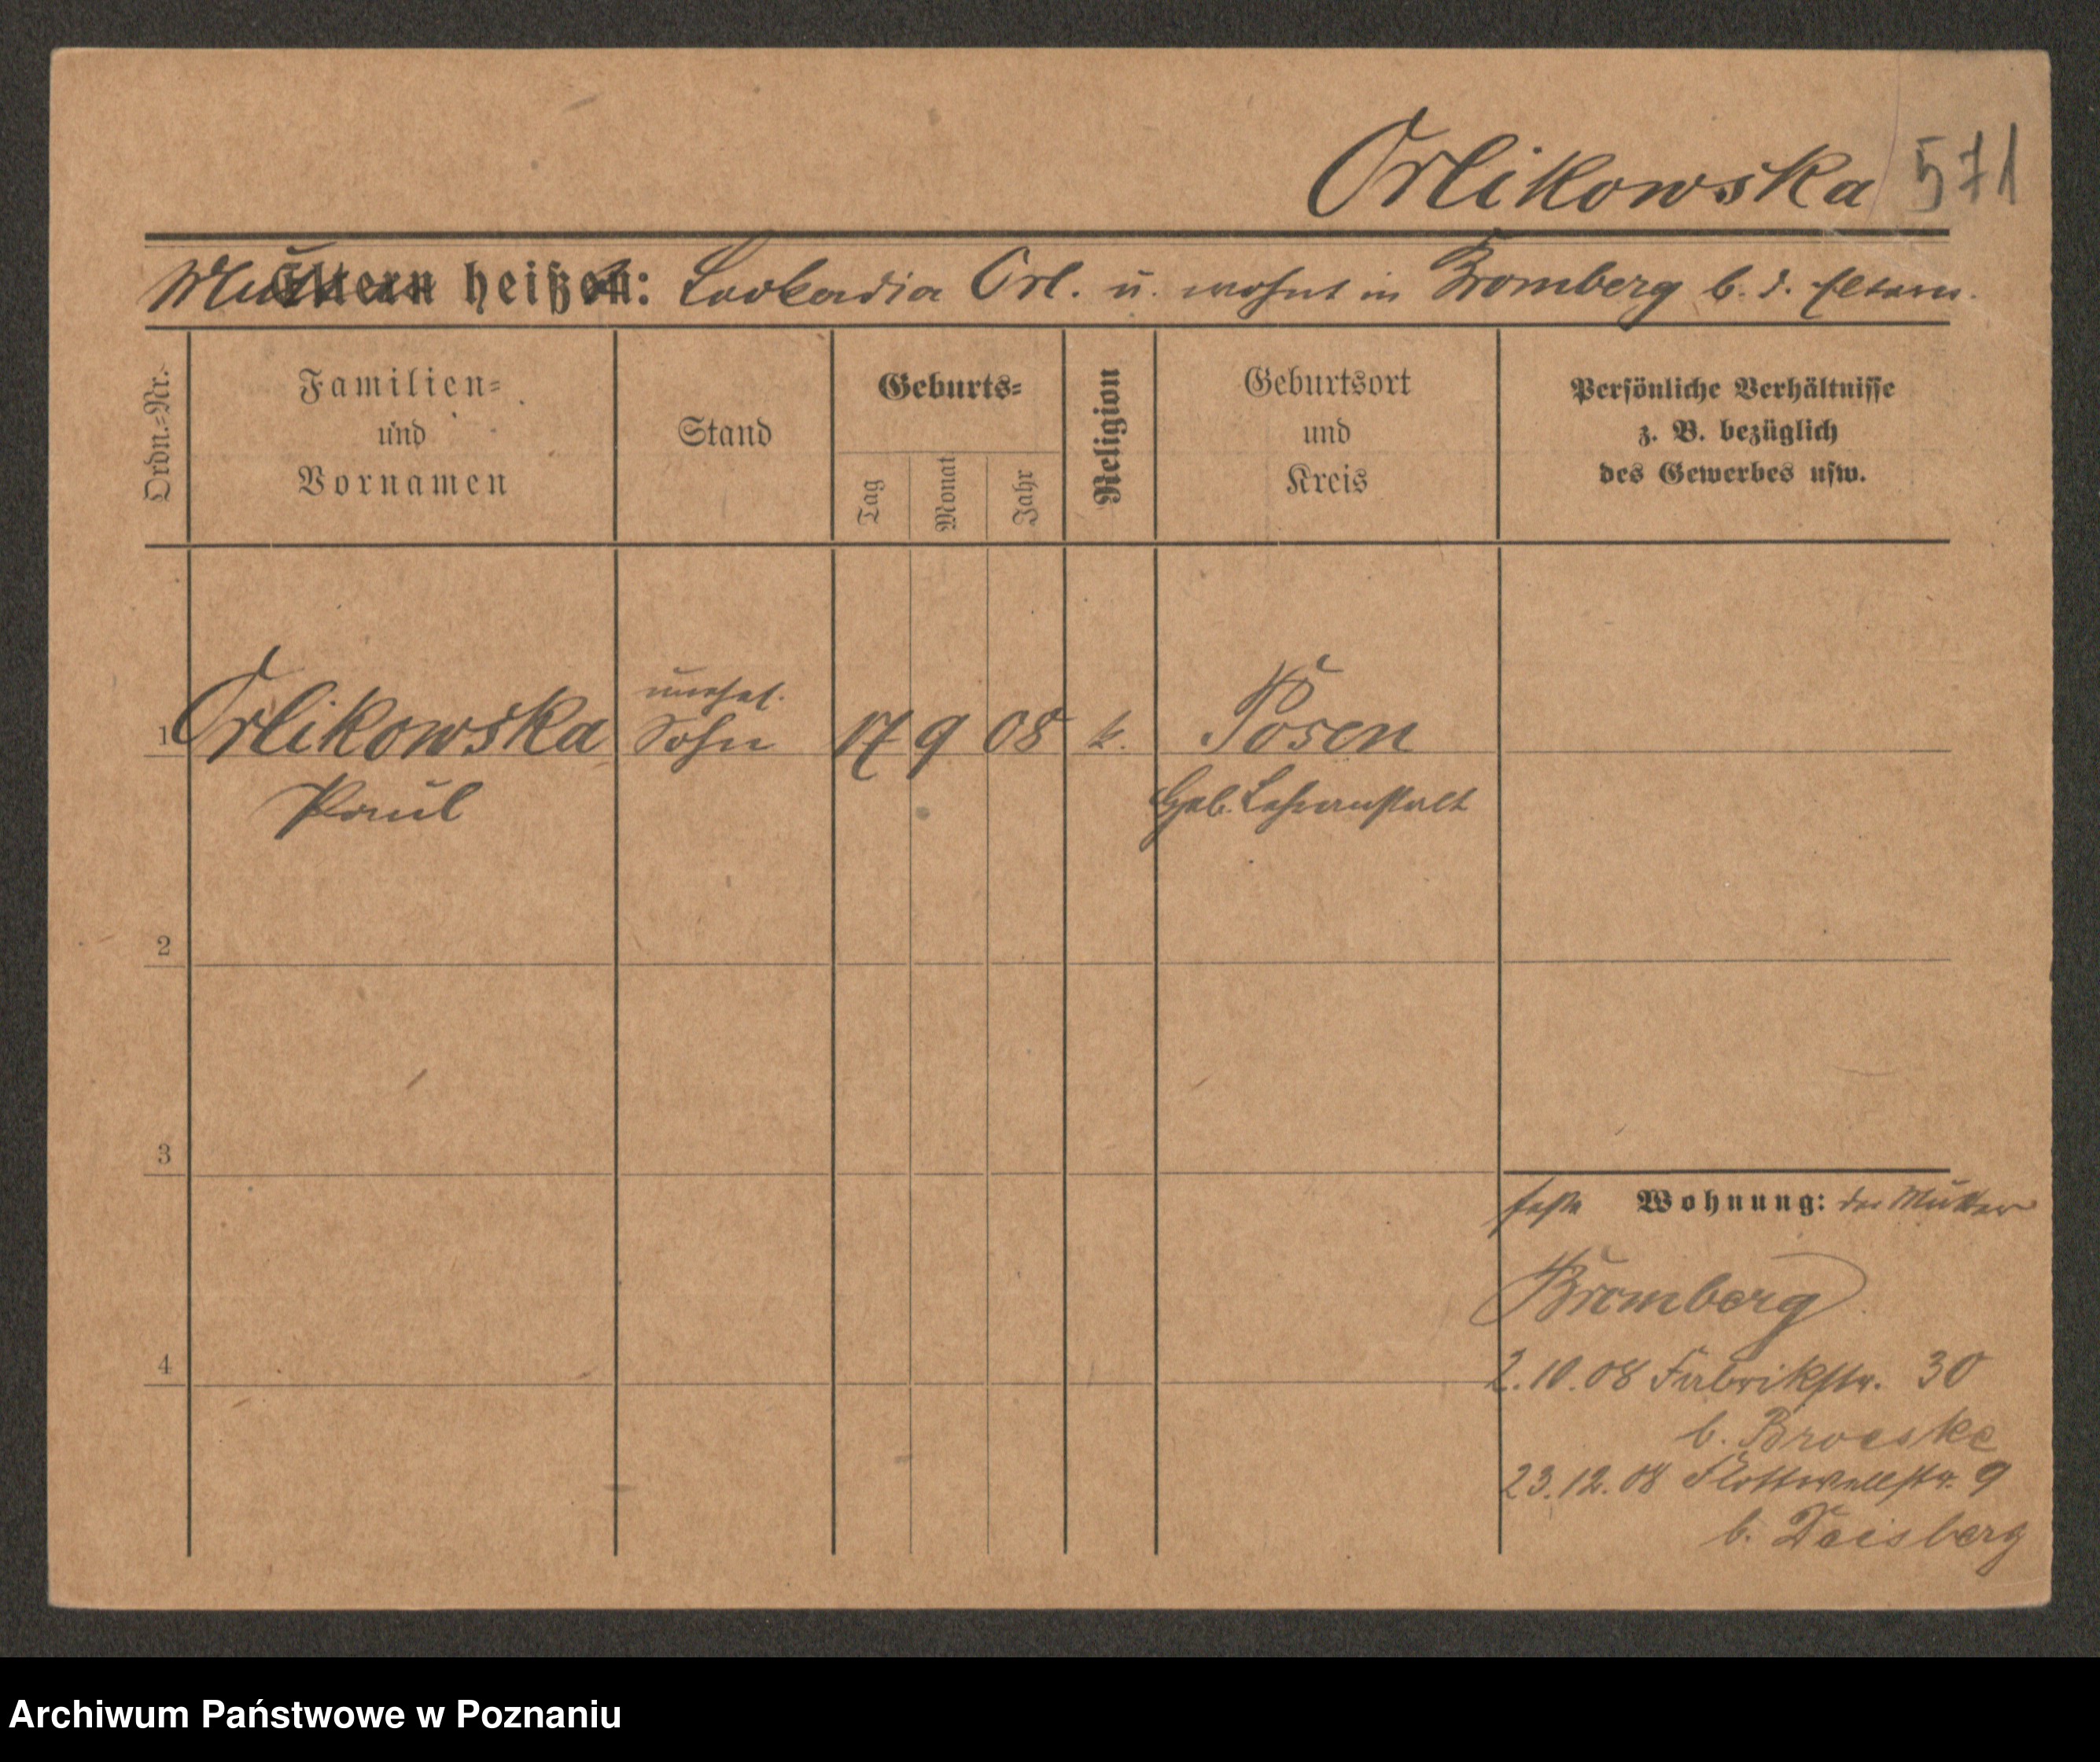 Orlikowska 571
Mutter heißt: Leokadia Orl. u. wohnt in Bromberg b. d. Eltern.
Ordn.=Nr.
Familien=
und
Vornamen
Stand
Geburts=
Tag
Monat
Jahr
Religion
Geburtsort
und
Kreis
Persönliche Verhältnisse
z. B. bezüglich
des Gewerbes usw.
unehel.
1 Orlikowska Sohn 17 9 08 k. Posen
Paul Heb. Lehranstalt
2
3
feste Wohnung: der Mutter
Bromberg
4
2.10.08 Fabrikstr. 30
b. Broeske
23.12.08 Flottwellstr. 9
b. Deisberg
Archiwum Państwowe w Poznaniu